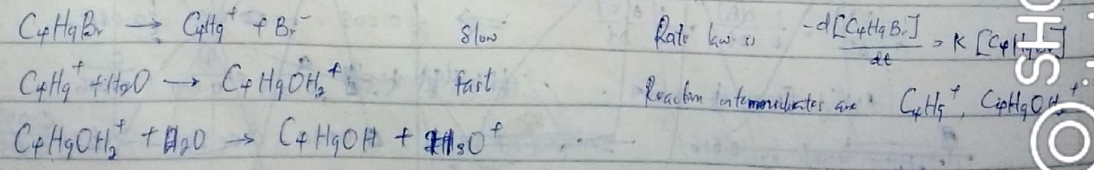 C4H9Br → C4H9⁺ + Br⁻ Slow Rate law is -d[C4H9Br]/dt = K [C4H
C4H9⁺ + H2O → C4H9OH2⁺ fast Reaction intermediates are C4H9⁺, C4H9OH2⁺
C4H9OH2⁺ + H2O → C4H9OH + H3O⁺
SHO